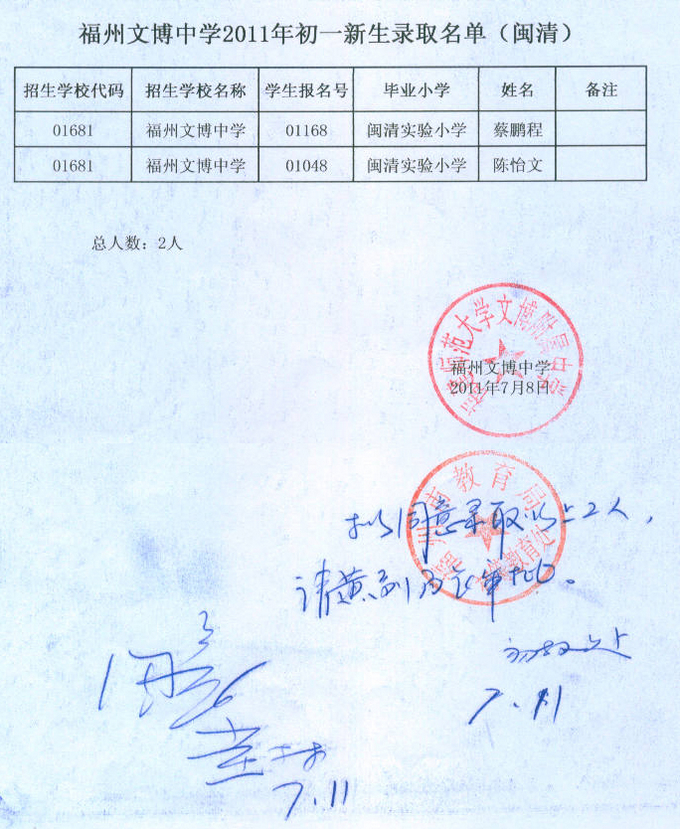 福州文博中学2011年初一新生录取名单（闽清）
招生学校代码 招生学校名称 学生报名号 毕业小学 姓名 备注
01681 福州文博中学 01168 闽清实验小学 蔡鹏程
01681 福州文博中学 01048 闽清实验小学 陈怡文
总人数：2人
师范大学文博附属中学
福州文博中学
2011年7月8日
州市教育局
教育处
拟同意录取以上2人，
请黄副局长审批。
初教处
7.11
同意
7.11